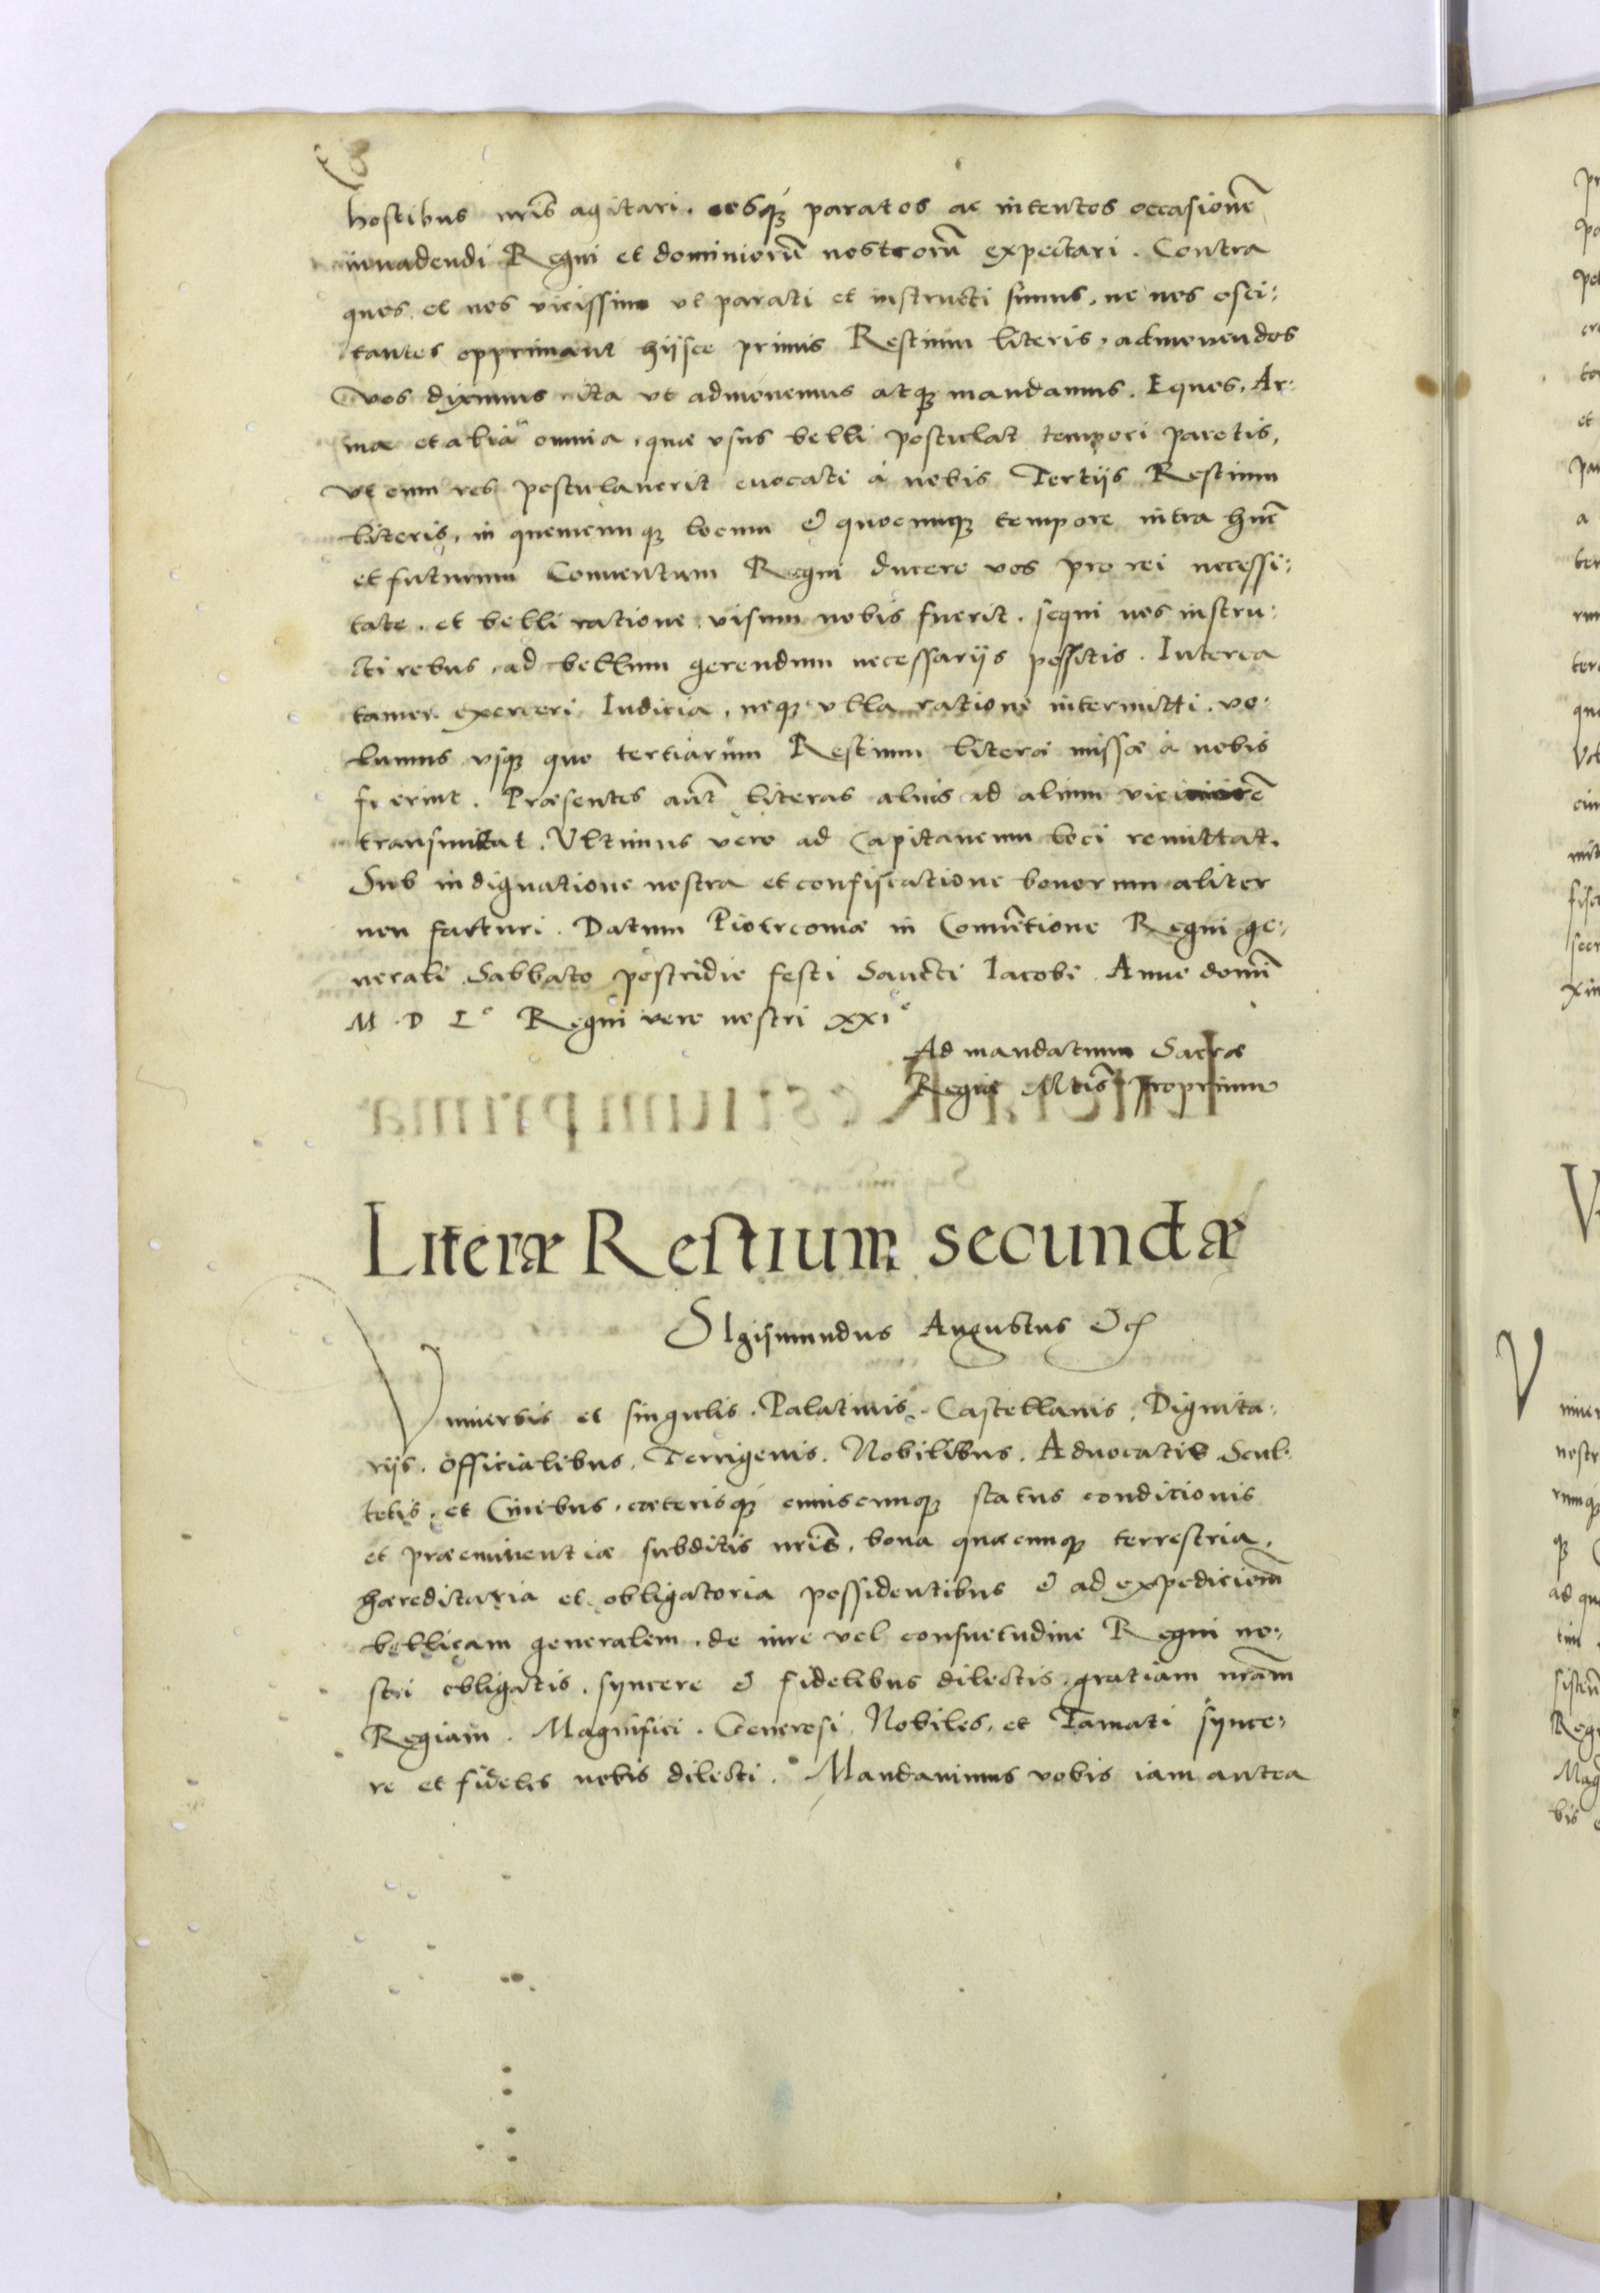 hostibus nris̃ agitari. eosq́ꝫ paratos ac intentos occasionẽ
inuadendi Regni et dominiorũ nostrorũ expectari. Contra
quos et nos vicissim vt parati et instructi simus, ne nos osci:
tantes opprimant hijsce primis Restium literis, admonendos
vos diximus ita vt admonemus atqꝫ mandamus. Equos, Ar:
ma et alia omnia, quæ vsus belli postulat tempori paretis,
vt cum res postulauerit euocati à nobis Tertijs Restium
literis, in quemcunqꝫ locum & quocunqꝫ tempore intra hunc̃
et futurum Conuentum Regni ducere vos pro rei necessi:
tate, et belli ratione, visum nobis fuerit, sequi nos instru:
cti rebus, ad bellum gerendum necessarijs possitis. Interea
tamen exerceri Iudicia, neqꝫ vlla ratione intermitti, vo:
lumus vsqꝫ quo tertiarum Restium literæ missæ à nobis
fuerint. Præsentes aũt literas alius ad alium viciniorẽ
transmittat. Vltimus vero ad Capitaneum loci remittat.
Sub indignatione nostra et confiscatione bonorum aliter
non facturi. Datum Piotrcouiæ in Conuẽtione Regni ge:
nerali Sabbato postridie festi Sancti Iacobi. Anno domĩ
M. D Lº Regni vero nostri xxiº
Ad mandatum Sacræ
Regiæ Mtis̃ proprium
Literæ Restium secundæ
SIgismundus Augustus &c
Vniuersis et singulis. Palatinis. Castellanis, Dignita:
rijs. officialibus, Terrigenis. Nobilibus. Aduocatis Scul:
tetis, et Ciuibus, cæterisq́ꝫ cuiuscunqꝫ status condicionis
et præeminentiæ subditis nris̃, bona quæcunqꝫ terrestria,
hæreditaria et obligatoria possidentibus & ad expedicionẽ
bellicam generalem, de iure vel consuetudine Regni no:
stri obligatis, syncere & fidelibus dilectis, gratiam nrãm
Regiam. Magnifici. Generosi, Nobiles, et Famati synce:
re et fidelis nobis dilecti. Mandauimus vobis iam antea